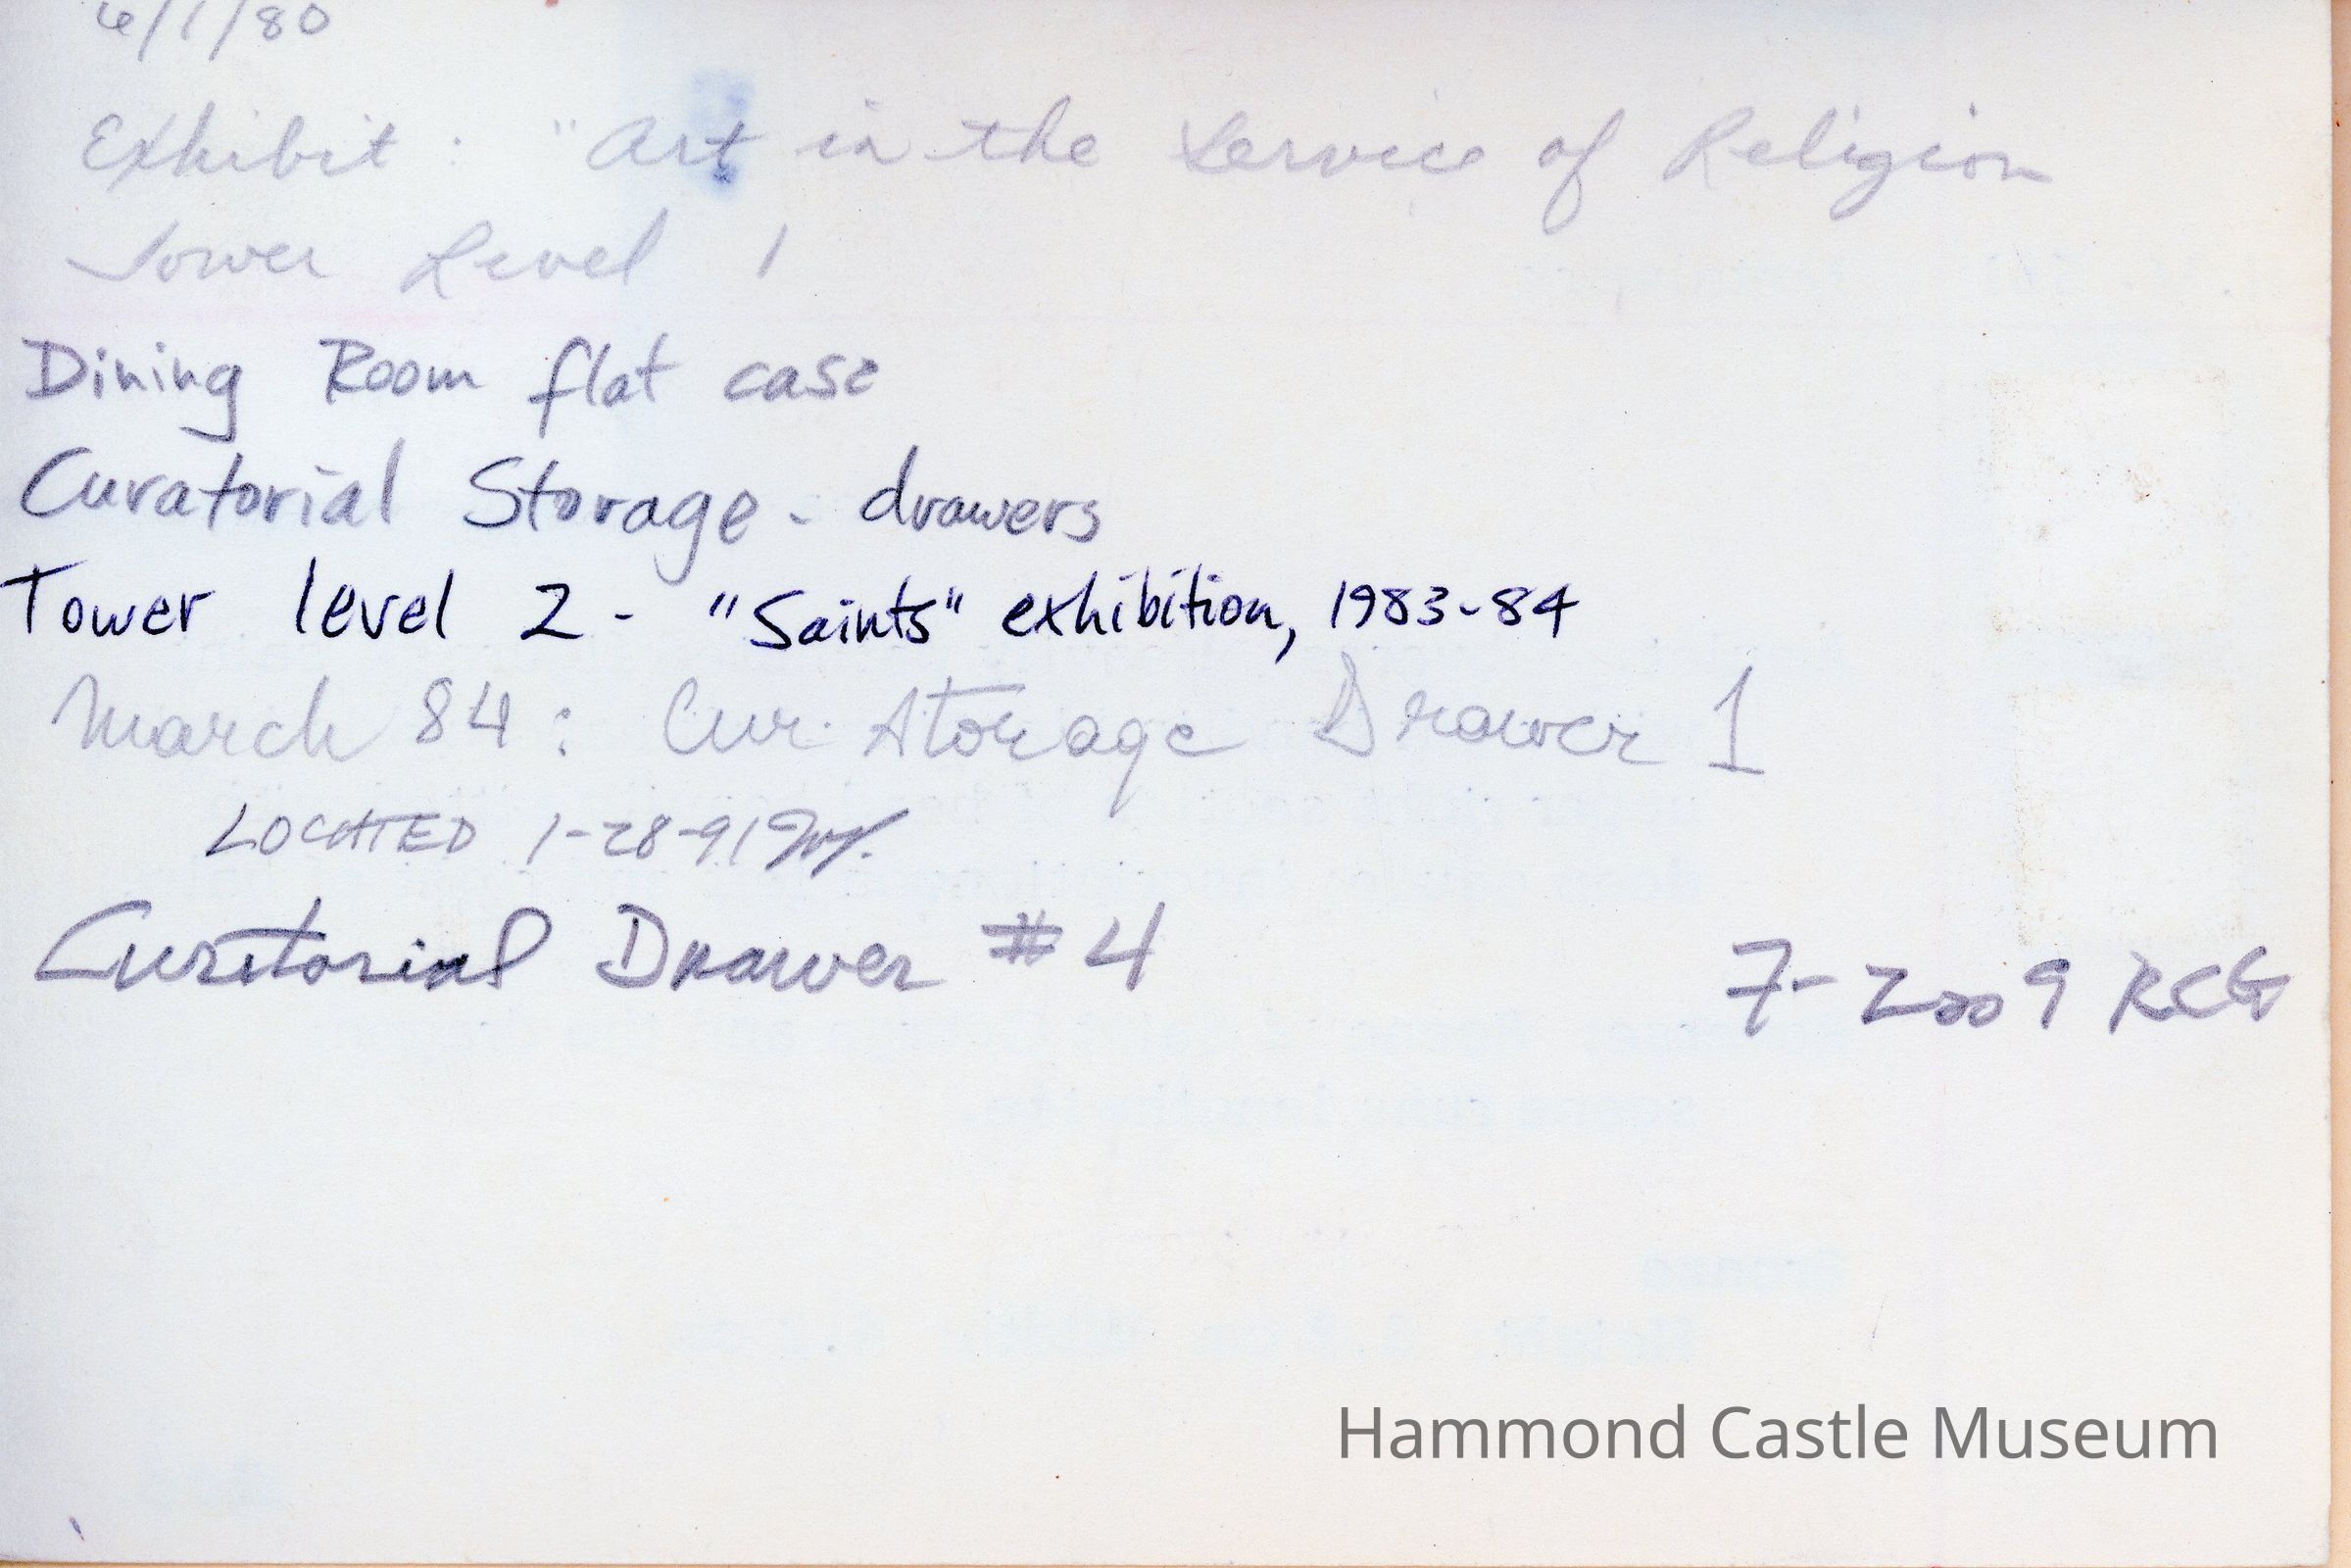 6/1/80
Exhibit : "Art in the Service of Religion
Tower Level 1
Dining Room flat case
Curatorial Storage - drawers
Tower level 2 - "Saints" exhibition, 1983-84
March 84 : Cur. Storage Drawer 1
LOCATED 1-28-91
Curatorial Drawer #4 7-2009 RCG
Hammond Castle Museum